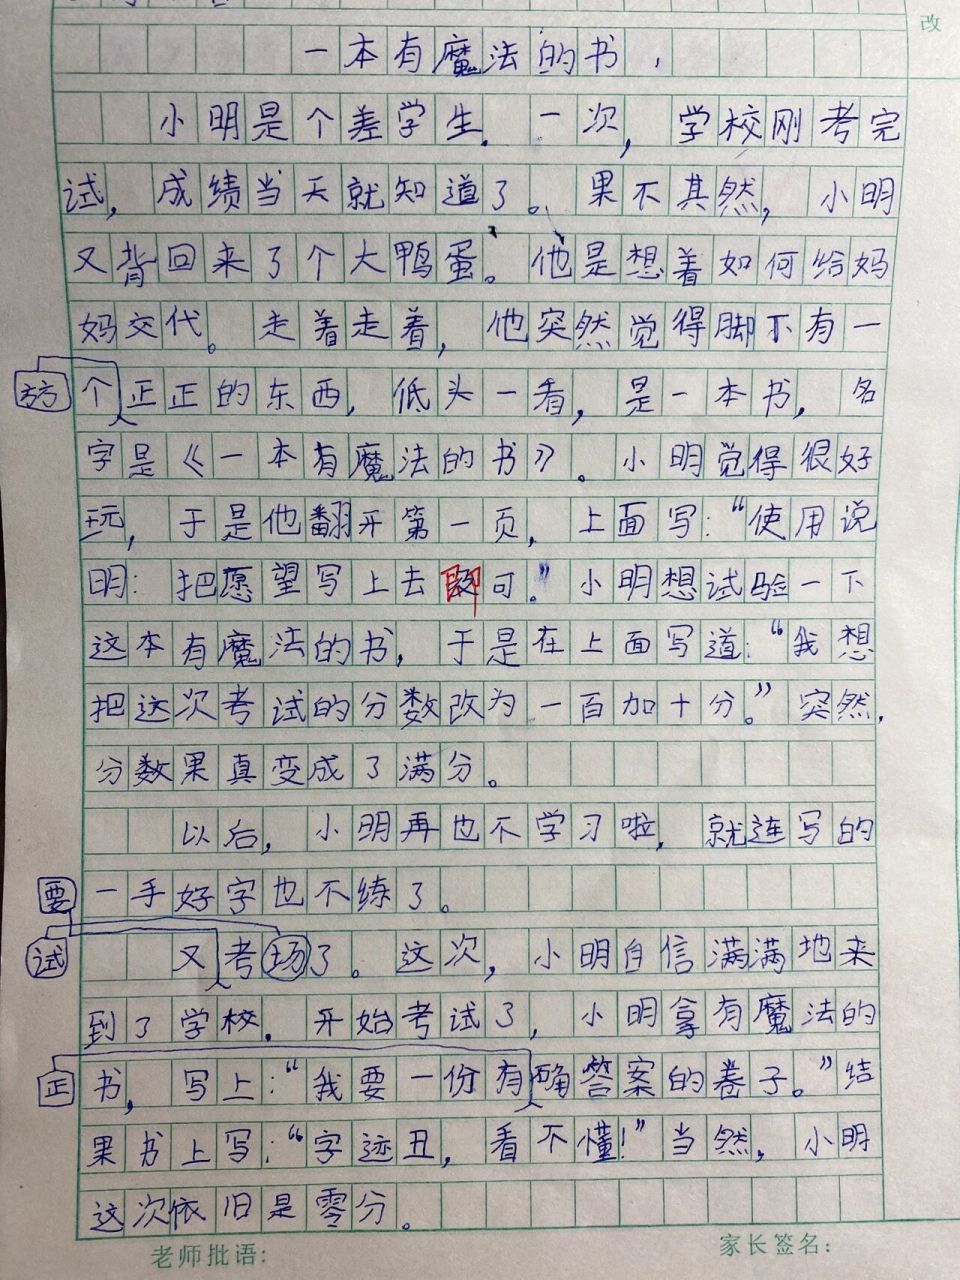 改
一本有魔法的书
小明是个差学生。一次，学校刚考完
试，成绩当天就知道了。果不其然，小明
又背回来了个大鸭蛋。他是想着如何给妈
妈交代。走着走着，他突然觉得脚下有一
方方
个正正的东西，低头一看，是一本书，名
字是《一本有魔法的书》。小明觉得很好
玩，于是他翻开第一页，上面写：“使用说
明：把愿望写上去即可。”小明想试验一下
这本有魔法的书，于是在上面写道：“我想
把这次考试的分数改为一百加十分。”突然，
分数果真变成了满分。
以后，小明再也不学习啦，就连写的
要
一手好字也不练了。
试
又考场了。这次，小明自信满满地来
到了学校。开始考试了，小明拿有魔法的
正
书，写上：“我要一份有确答案的卷子。”结
果书上写：“字迹丑，看不懂！”当然，小明
这次依旧是零分。
老师批语：
家长签名：